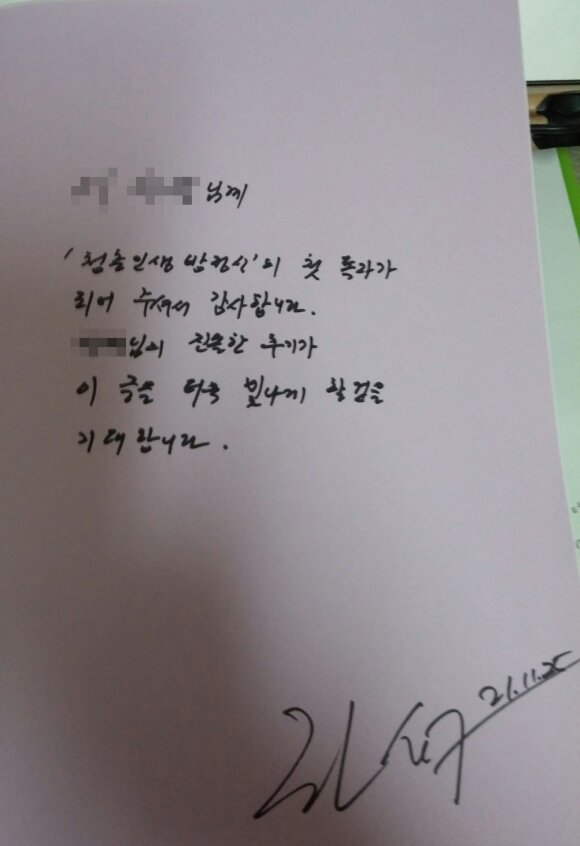 님께
'청송인생 밥정신'의 첫 독자가
되어 주셔서 감사합니다.
님의 진솔한 후기가
이 글을 더욱 빛나게 할 것을
기대합니다.
21.11.25